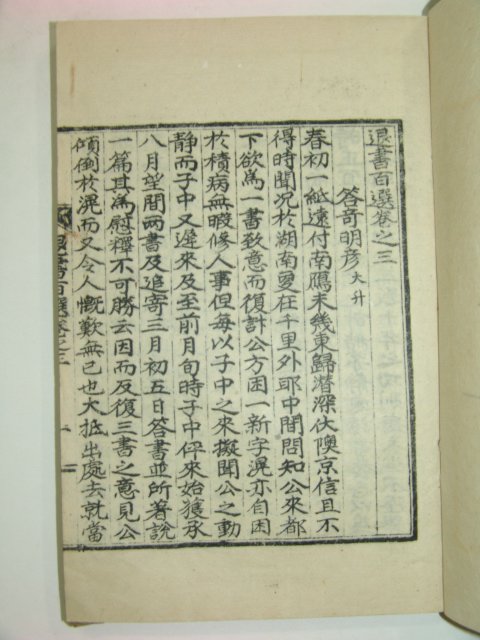 退書百選卷之三
答奇明彦 大升
春初一紙遠付南鴈未幾東歸潛深伏隩京信且不
得時聞況於湖南夐在千里外耶中間問知公來都
下欲爲一書致意而復計公方困一新字滉亦自困
於積病無暇修人事但每以子中之來擬聞公之動
靜而子中又遲來及至前月旬時子中伻來始獲承
八月望間兩書及追寄三月初五日答書並所著說
一篇其爲慰釋不可勝云因而反復三書之意見公
傾倒於滉而又令人慨歎無已也大抵出處去就當
退書百選卷之三